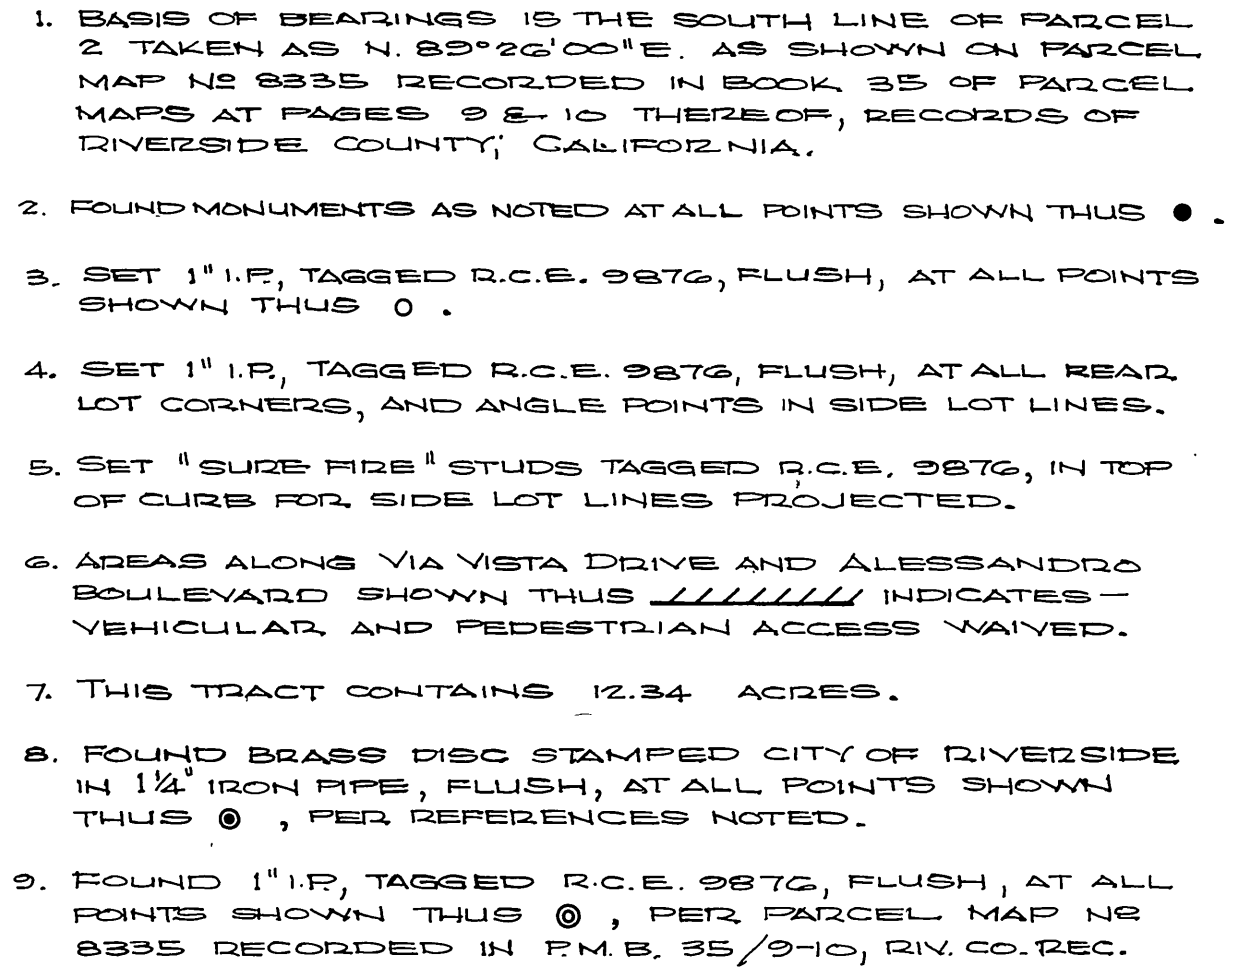 1. BASIS OF BEARINGS IS THE SOUTH LINE OF PARCEL
2 TAKEN AS N. 89°26'00"E. AS SHOWN ON PARCEL
MAP Nº 8335 RECORDED IN BOOK 35 OF PARCEL
MAPS AT PAGES 9 & 10 THEREOF, RECORDS OF
RIVERSIDE COUNTY, CALIFORNIA.
2. FOUND MONUMENTS AS NOTED AT ALL POINTS SHOWN THUS ● .
3. SET 1" I.P., TAGGED R.C.E. 9876, FLUSH, AT ALL POINTS
SHOWN THUS ○ .
4. SET 1" I.P., TAGGED R.C.E. 9876, FLUSH, AT ALL REAR
LOT CORNERS, AND ANGLE POINTS IN SIDE LOT LINES.
5. SET "SURE FIRE" STUDS TAGGED R.C.E. 9876, IN TOP
OF CURB FOR SIDE LOT LINES PROJECTED.
6. AREAS ALONG VIA VISTA DRIVE AND ALESSANDRO
BOULEVARD SHOWN THUS INDICATES—
VEHICULAR AND PEDESTRIAN ACCESS WAIVED.
7. THIS TRACT CONTAINS 12.34 ACRES.
8. FOUND BRASS DISC STAMPED CITY OF RIVERSIDE
IN 1¼" IRON PIPE, FLUSH, AT ALL POINTS SHOWN
THUS ◉ , PER REFERENCES NOTED.
9. FOUND 1" I.P., TAGGED R.C.E. 9876, FLUSH, AT ALL
POINTS SHOWN THUS ◎ , PER PARCEL MAP Nº
8335 RECORDED IN P.M.B. 35/9-10, RIV. CO. REC.